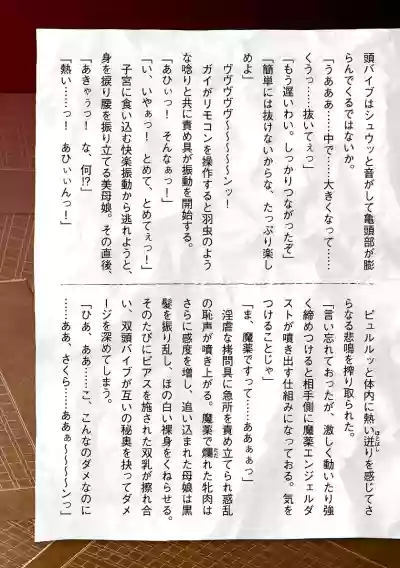 頭バイブはシュウッと音がして亀頭部が膨
らんでくるではないか。
「うああああ……中で……大きくなって……
くうっ……抜いてぇっ」
「もう遅いわい。しっかりつながったぞ」
「簡単には抜けないからな、たっぷり楽し
めよ」
ヴヴヴヴヴ～～～～～ンッ！
ガイがリモコンを操作すると羽虫のよう
な唸りと共に責め具が振動を開始する。
「あひぃっ！　そんなぁっ！」
「い、いやぁっ！　とめて、とめてぇっ！」
子宮に食い込む快楽振動から逃れようと、
身を捩り腰を振り立てる美母娘。その直後、
「あきゃぅっ！　な、何!?」
「熱い……っ！　あひぃぃんっ！」
ピュルルッと体内に熱い迸りを感じてさ
らなる悲鳴を搾り取られた。
「言い忘れておったが、激しく動いたり強
く締めつけると相手側に魔薬エンジェルダ
ストが噴き出す仕組みになっておる。気を
つけることじゃ」
「ま、魔薬ですって……ああぁぁっ」
淫虐な拷問具に急所を責め立てられ惑乱
の恥声が噴き上がる。魔薬で爛れた牝肉は
さらに感度を増し、追い込まれた母娘は黒
髪を振り乱し、ほの白い裸身をくねらせる。
そのたびにピアスを施された双乳が擦れ合
い、双頭バイブが互いの秘奥を抉ってダメ
ージを深めてしまう。
「ひあ、ああ……こ、こんなのダメなのに
……ああ、さくら……ああぁ～～～～ンっ」